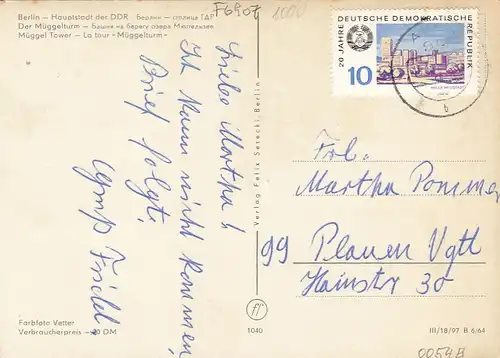 Berlin — Hauptstadt der DDR Берлин — столица ГДР
Der Müggelturm — Башня на берегу озера Мюггельзее
Müggel Tower — La tour «Müggelturm»
F6907
1000
20 JAHRE DEUTSCHE DEMOKRATISCHE REPUBLIK
10
HALLE-NEUSTADT
Liebe Martha!
Ich kann nicht kommen,
Brief folgt.
Frieda.
Verlag Felix Setecki, Berlin
Frl.
Martha Pommer
99 Plauen Vgtl
Hainstr 30
Farbfoto Vetter
Verbraucherpreis —,20 DM
1040
III/18/97 B 6/64
0054B